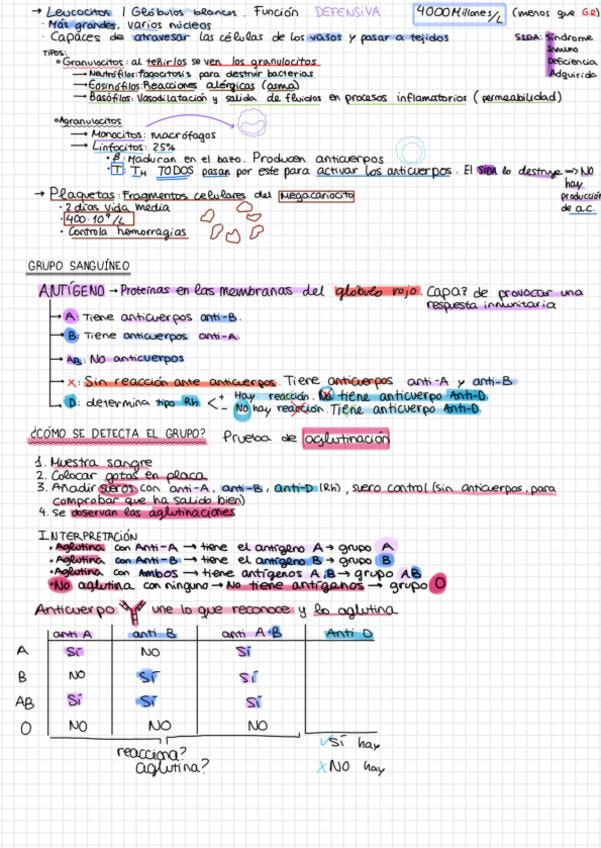 → Leucocitos | Glóbulos blancos. Función DEFENSIVA 4000 Millones/L (menos que G.R)
· Más grandes, varios núcleos
· Capaces de atravesar las células de los vasos y pasar a tejidos
SIDA: Síndrome
Inmuno
Deficiencia
Adquirida
TIPOS:
Granulocitos: al teñirlos se ven los granulocitos
→ Neutrófilos: Fagocitosis para destruir bacterias
→ Eosinófilos: Reacciones alérgicas (asma)
→ Basófilos: Vasodilatación y salida de fluidos en procesos inflamatorios (permeabilidad)
Agranulocitos
→ Monocitos: macrófagos
→ Linfocitos: 25%
· B: Maduran en el bazo. Producen anticuerpos
· T: TH TODOS pasan por este para activar los anticuerpos. El SIDA lo destruye ⇒ NO
hay
producción
de a.c.
→ Plaquetas: Fragmentos celulares del Megacariocito
· 2 días vida media
· 400·10⁹/L
· Controla hemorragias
GRUPO SANGUÍNEO
ANTÍGENO → Proteínas en las membranas del glóbulo rojo. Capaz de provocar una
respuesta inmunitaria
→ A: Tiene anticuerpos anti-B.
→ B: Tiene anticuerpos anti-A.
→ AB: No anticuerpos
→ X: Sin reacción ante anticuerpos. Tiene anticuerpos anti-A y anti-B
→ D: determina tipo Rh < + Hay reacción. No tiene anticuerpo Anti-D.
- No hay reacción. Tiene anticuerpo Anti-D.
¿CÓMO SE DETECTA EL GRUPO? Prueba de aglutinación
1. Muestra sangre
2. Colocar gotas en placa
3. Añadir sueros con anti-A, anti-B, anti-D (Rh), suero control (sin anticuerpos, para
comprobar que ha salido bien)
4. Se observan las aglutinaciones
INTERPRETACIÓN
· Aglutina con Anti-A → tiene el antígeno A → grupo A
· Aglutina con Anti-B → tiene el antígeno B → grupo B
· Aglutina con Ambos → tiene antígenos A,B → grupo AB
· No aglutina con ninguno → No tiene antígenos → grupo O
Anticuerpo une lo que reconoce y lo aglutina
anti A anti B anti A+B Anti D
A Sí NO Sí
B NO Sí Sí
AB Sí Sí Sí
O NO NO NO
✓ Sí hay
reacciona?
aglutina?
X NO hay